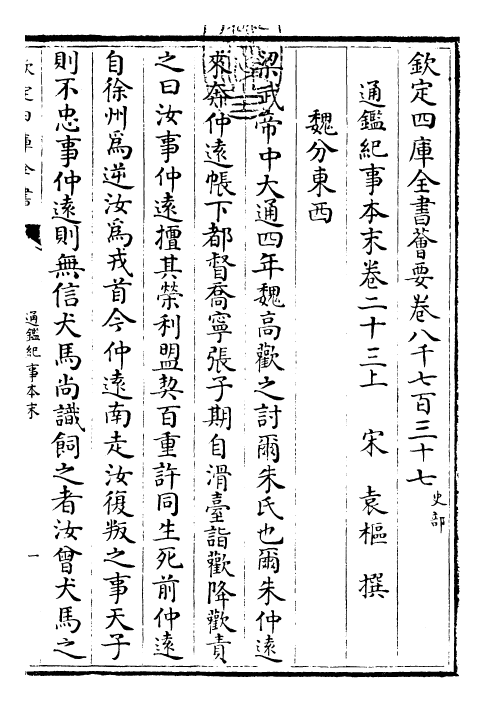 欽定四庫全書薈要卷八千七百三十七 史部
通鑑紀事本末卷二十三上 宋 袁樞 撰
魏分東西
梁武帝中大通四年魏高歡之討爾朱氏也爾朱仲遠
來奔仲遠帳下都督喬寧張子期自滑臺詣歡降歡責
之曰汝事仲遠擅其榮利盟契百重許同生死前仲遠
自徐州為逆汝為戎首今仲遠南走汝復叛之事天子
則不忠事仲遠則無信犬馬尚識飼之者汝曾犬馬之
欽定四庫全書
通鑑紀事本末
一